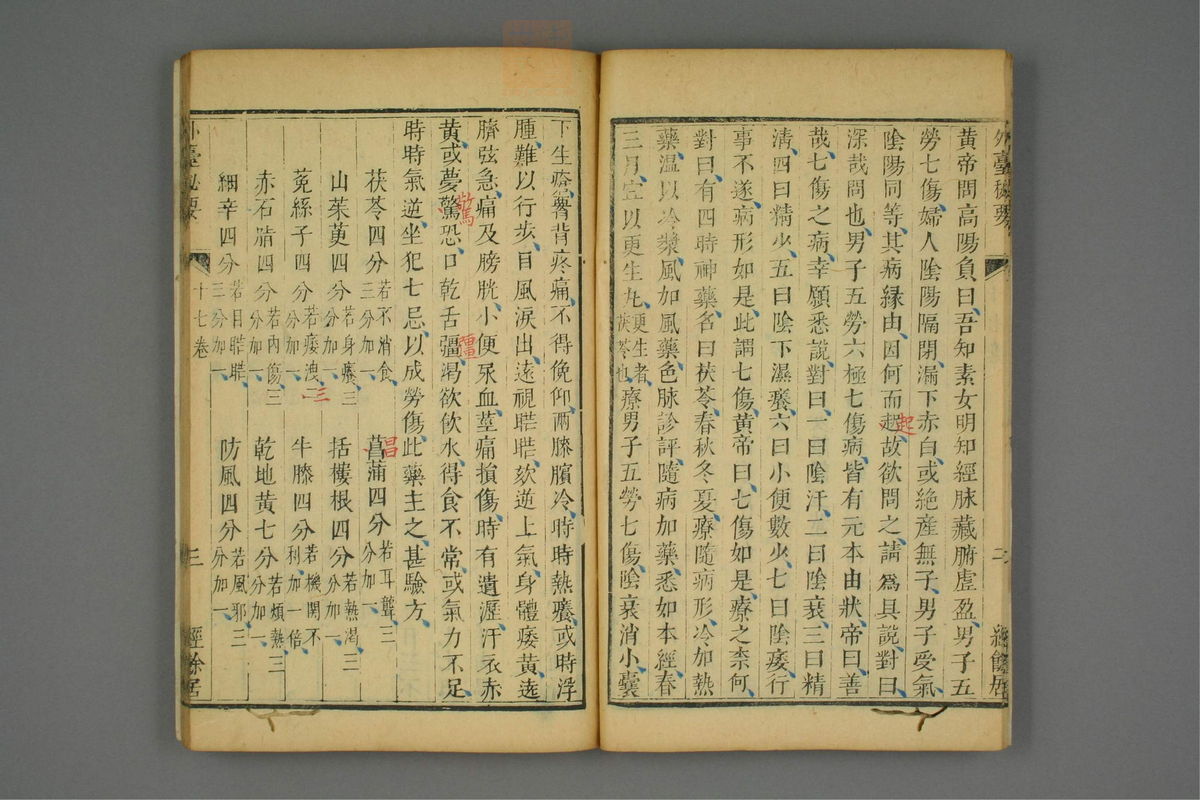 外臺秘要
二
經餘居
黃帝問高陽負曰吾知素女明知經脉藏腑虛盈男子五
勞七傷婦人陰陽隔閉漏下赤白或絶產無子男子受氣
陰陽同等其病緣由因何而起故欲問之請爲具說對曰
起
深哉問也男子五勞六極七傷病皆有元本由狀帝曰善
哉七傷之病幸願悉說對曰一曰陰汗二曰陰衰三曰精
清四曰精少五曰陰下濕癢六曰小便數少七曰陰痿行
事不遂病形如是此謂七傷黃帝曰七傷如是療之柰何
對曰有四時神藥名曰茯苓春秋冬夏療隨病形冷加熱
藥溫以冷漿風加風藥色脉診評隨病加藥悉如本經春
三月宜以更生丸更生者茯苓也療男子五勞七傷陰衰消小囊
下生瘡背疼痛不得俛仰兩膝臏冷時時熱癢或時浮
腫難以行步目風淚出遠視䀮䀮欬逆上氣身體痿黃遶
臍弦急痛及膀胱小便尿血莖痛損傷時有遺瀝汗衣赤
黃或夢驚恐口乾舌彊渴欲飲水得食不常或氣力不足
驚
畺
時時氣逆坐犯七忌以成勞傷此藥主之甚驗方
茯苓四分若不消食三分加一 菖蒲四分若耳聾三分加一
昌
山茱萸四分若身癢三分加一 栝樓根四分若熱渴三分加一
菟絲子四分若痿洩三分加一 牛膝四分若機關不利加一倍
三
赤石脂四分若內傷三分加一 乾地黃七分若煩熱三分加一
細辛四分若目䀮䀮三分加一 防風四分若風邪三分加一
外臺秘要
十七卷
三
經餘居